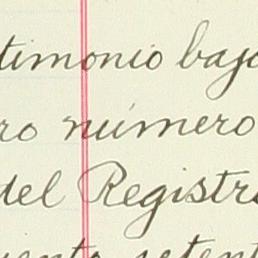 timonio bajo
ro número
del Registr
uento setent